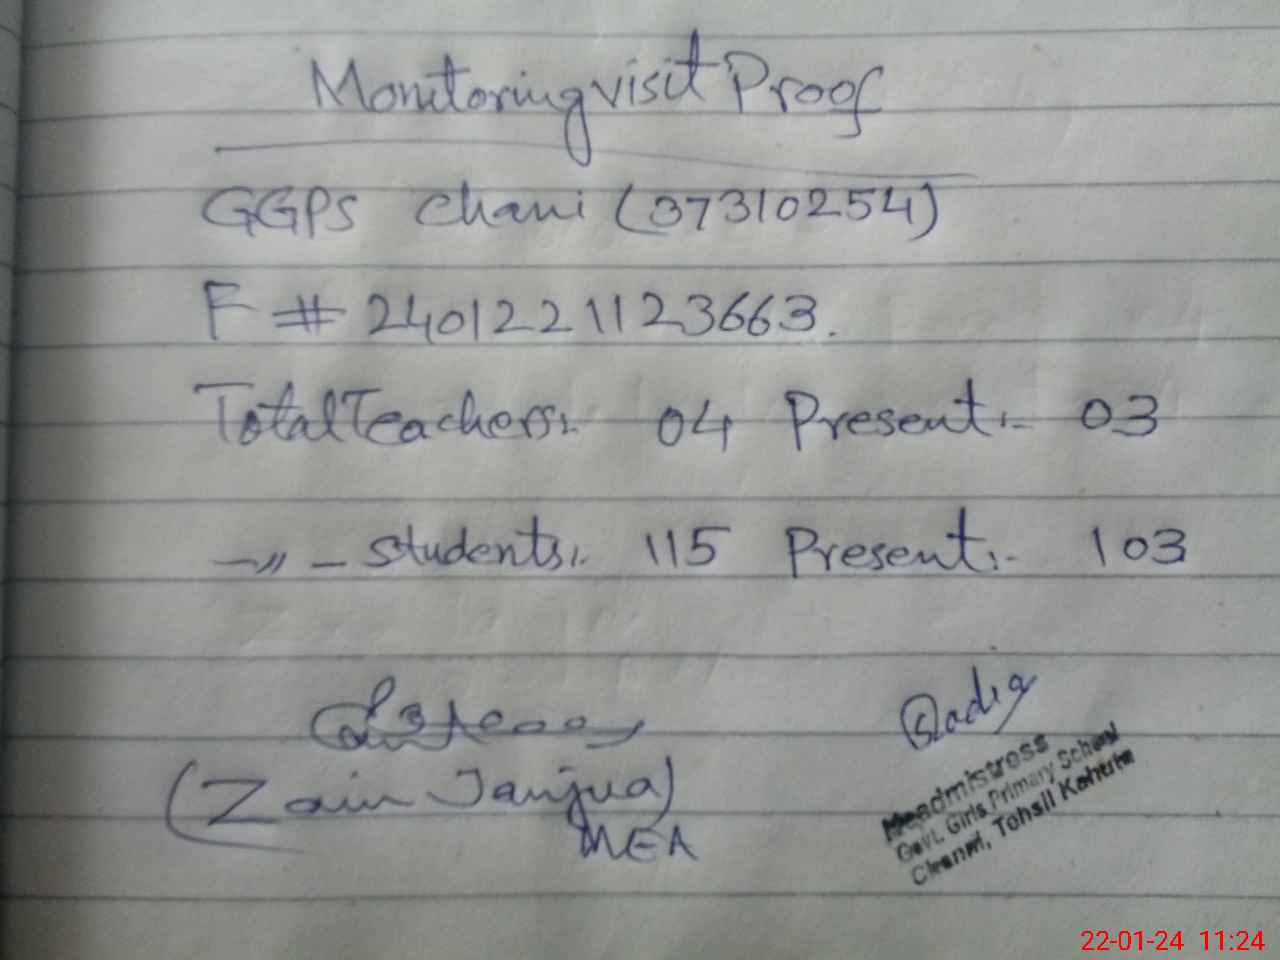 Monitoring visit Proof
GGPS Chani (37310254)
F # 2401221123663.
Total Teachers:- 04 Present:- 03
-〃- Students:- 115 Present:- 103
(Zain Janjua)
MEA
Sadia
Headmistress
Govt. Girls Primary School
Channi, Tehsil Kahuta
22-01-24 11:24